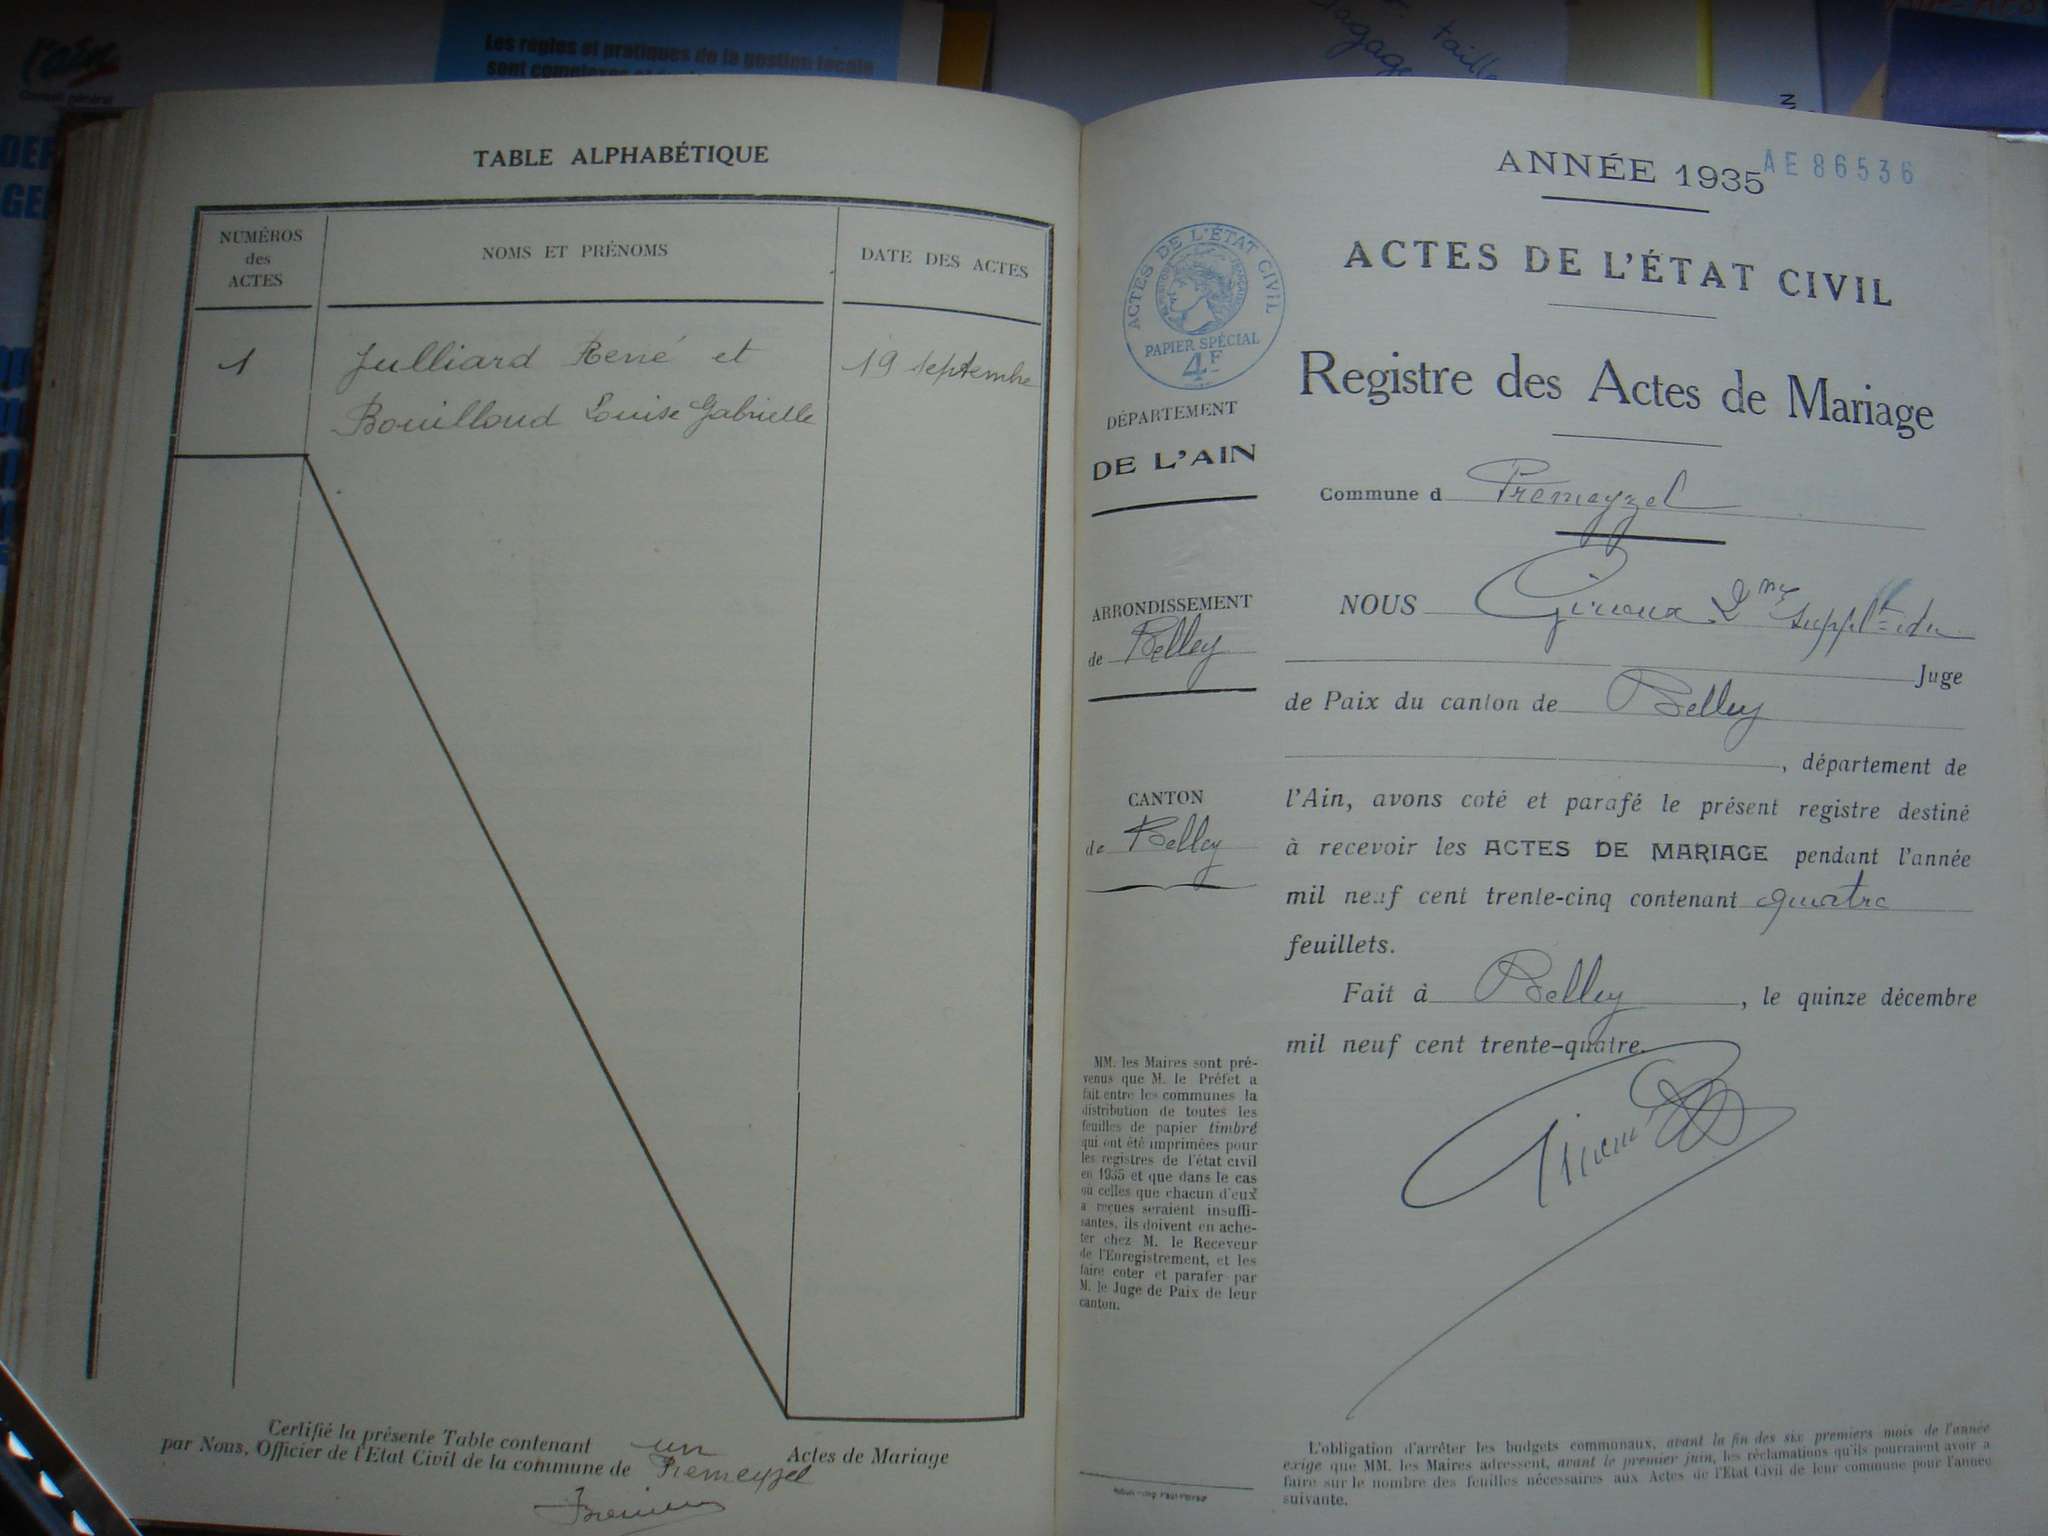 l'ain
Conseil général
Les règles et pratiques de la gestion locale
sont complexes et
taille
TABLE ALPHABÉTIQUE
NUMÉROS
des
ACTES
NOMS ET PRÉNOMS
DATE DES ACTES
1
Julliard René et
19 septembre
Bouilloud Louise Gabrielle
Certifié la présente Table contenant un Actes de Mariage
par Nous, Officier de l'Etat Civil de la commune de Prémeyzel
ANNÉE 1935
AE 86536
ACTES DE L'ÉTAT CIVIL
ACTES DE L'ÉTAT CIVIL
RÉPUBLIQUE FRANÇAISE
PAPIER SPÉCIAL
4F
Registre des Actes de Mariage
DÉPARTEMENT
DE L'AIN
Commune d Prémeyzel
ARRONDISSEMENT
de Belley
NOUS Giroux 2me supplt du
Juge
de Paix du canton de Belley
, département de
CANTON
de Belley
l'Ain, avons coté et parafé le présent registre destiné
à recevoir les ACTES DE MARIAGE pendant l'année
mil neuf cent trente-cinq contenant quatre
feuillets.
Fait à Belley, le quinze décembre
mil neuf cent trente-quatre.
MM. les Maires sont pré-
venus que M. le Préfet a
fait entre les communes la
distribution de toutes les
feuilles de papier timbré
qui ont été imprimées pour
les registres de l'état civil
en 1935 et que dans le cas
où celles que chacun d'eux
a reçues seraient insuffi-
santes, ils doivent en ache-
ter chez M. le Receveur
de l'Enregistrement, et les
faire coter et parafer par
M. le Juge de Paix de leur
canton.
L'obligation d'arrêter les budgets communaux, avant la fin des six premiers mois de l'année
exige que MM. les Maires adressent, avant le premier juin, les réclamations qu'ils pourraient avoir a
faire sur le nombre des feuilles nécessaires aux Actes de l'Etat Civil de leur commune pour l'année
suivante.